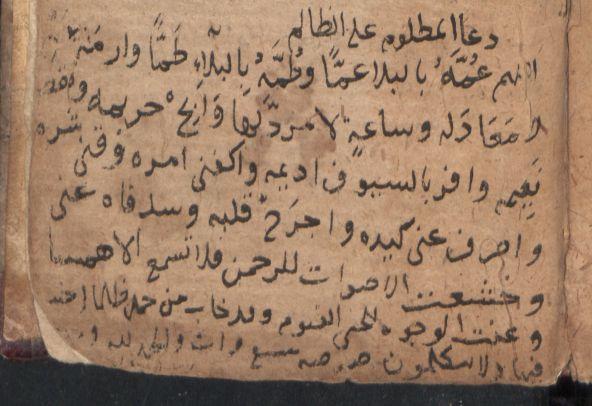 دعا المظلوم على الظالم
اللهم عُمَّهُ بالبلا عمًّا وطُمَّهُ بالبلاءِ طَمًّا وارمه
لا مَعَادَله وساعةٍ لا مردّ لها وَابحْ حريمه
نعيمه وافر بالسيو في اديمه واكفنى امره وقنى شره
واصرف عنى كيده واجرَحْ قلبه وسد فاه عنى
وخشعت الاصوات للرحمن فلا تسمع الا همسا
وعنت الوجوه للحى القيوم وقد خاب من حمل ظلما اخسئوا
فيها ولا تكلمون صه صه سبع مرات والحمد لله